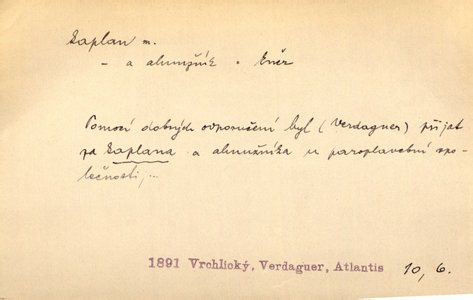 kaplan m.
– a almužník
Pomocí dobrých odporučení byl (Verdaguer) přijat
za kaplana a almužníka u paroplavební spo-
lečnosti,...
1891 Vrchlický, Verdaguer, Atlantis 10, 6.